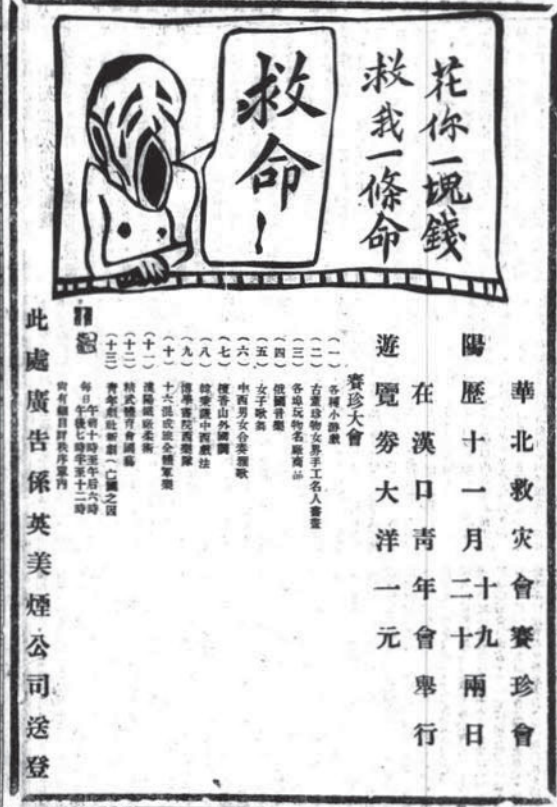 花你一塊錢
救我一條命
救命！
華北救灾會賽珍會
陽歷十一月十九二十兩日
在漢口靑年會舉行
遊覽券大洋一元
賽珍大會
（一）各種小游戲
（二）古董珍物女界手工名人書畫
（三）各埠玩物名廠商品
（四）俄國音樂
（五）女子歌舞
（六）中西男女合奏雅歌
（七）檀香山外國調
（八）韓秉謙中西戲法
（九）博學書院西樂隊
（十）十六混成旅全體軍樂
（十一）漢陽鐵廠柔術
（十二）精武體育會國藝
（十三）靑年劇社新劇（亡國之因
每日午前十時至午后六時
午後七時半至十二時
尚有細目詳秩序單內
此處廣告係英美煙公司送登